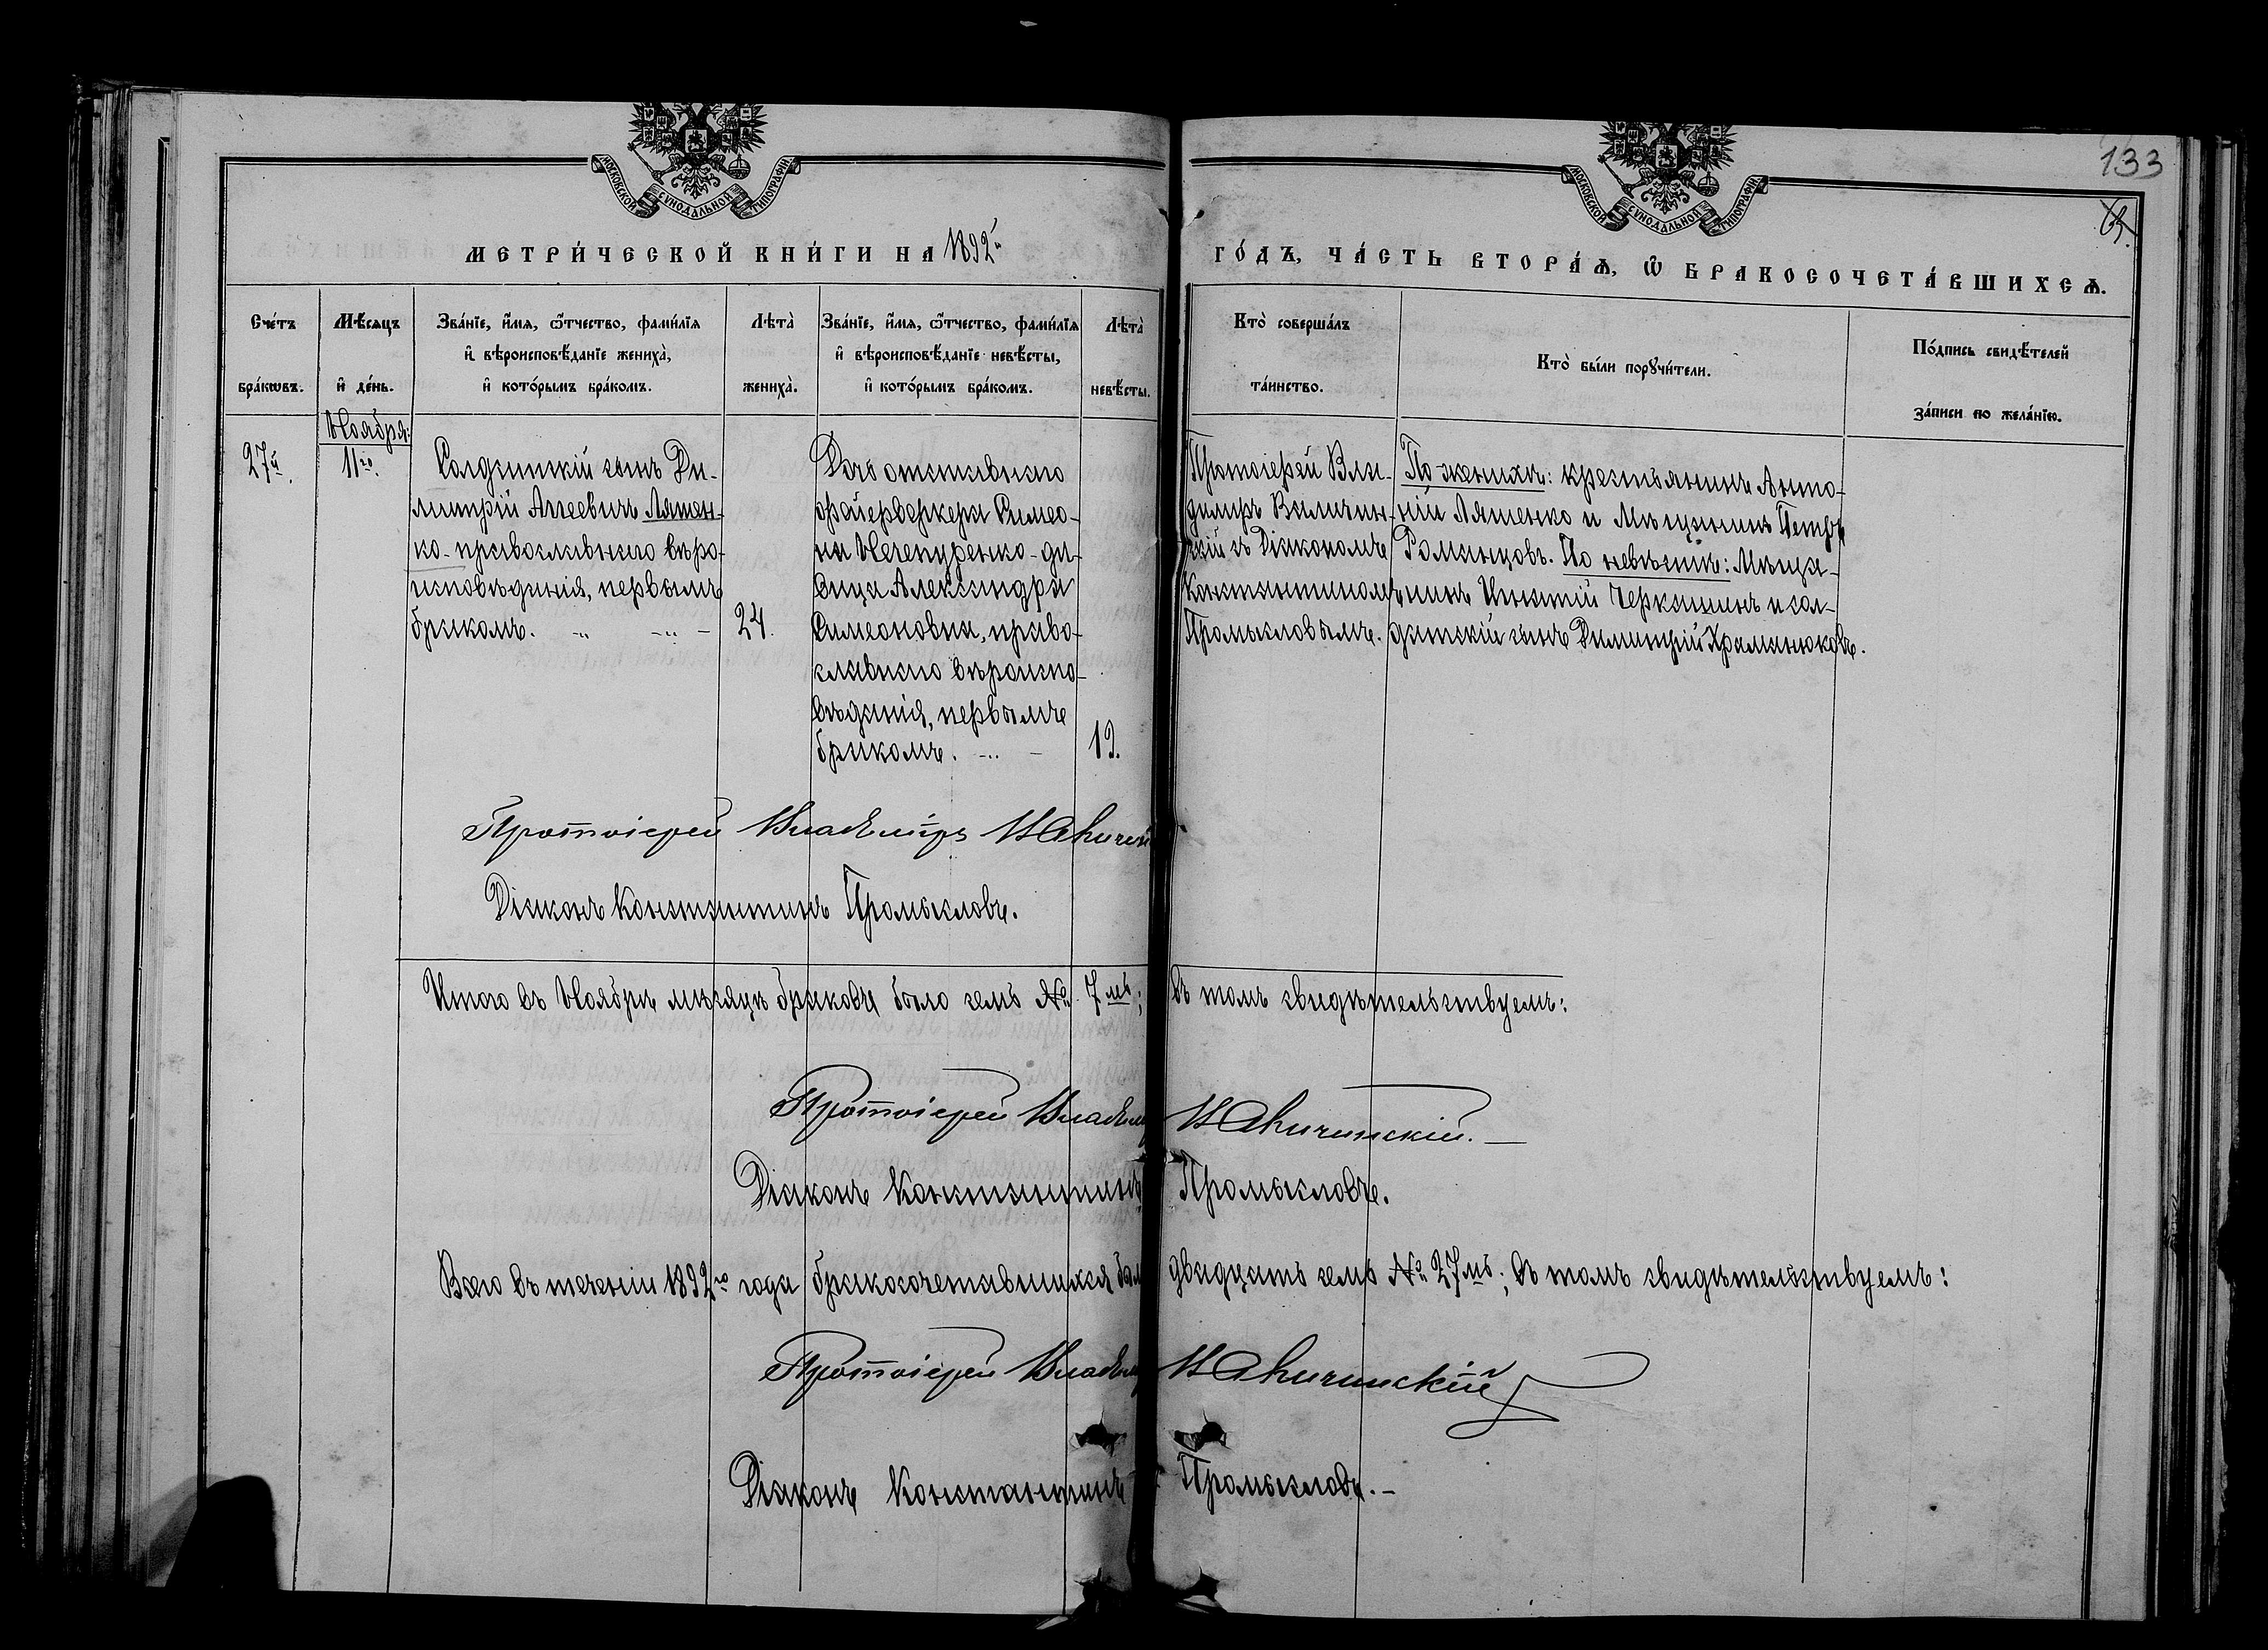 133
МОСКОВСКОЙ СУНОДАЛЬНОЙ ТИПОГРАФІИ
МОСКОВСКОЙ СУНОДАЛЬНОЙ ТИПОГРАФІИ
МЕТРИ́ЧЕСКОЙ КНИ́ГИ НА 1892й
ГО́ДЪ, ЧА́СТЬ ВТОРА́Ѧ, Ѡ҆ БРАКОСОЧЕТА́ВШИХСѦ.
Сче́тъ
бра́кѡвъ.
Мѣ́сѧцъ
и҆ де́нь.
Зва́нїе, и҆́мѧ, ѻ҆́тчество, фами́лїѧ
и҆ вѣроисповѣ́данїе жениха̀,
и҆ кото́рымъ бра́комъ.
Лѣта̀
жениха̀.
Зва́нїе, и҆́мѧ, ѻ҆́тчество, фами́лїѧ
и҆ вѣроисповѣ́данїе невѣ́сты,
и҆ кото́рымъ бра́комъ.
Лѣта̀
невѣ́сты.
Кто̀ соверша́лъ
та́инство.
Кто̀ бы́ли порꙋчи́тели.
По́дпись свидѣ́телей
за́писи по жела́нїю.
27й.
Ноября:
11го.
Солдатскій сынъ Ди-
митрій Аггеевичъ Ляшен-
ко - православнаго вѣро-
исповѣданія, первымъ
бракомъ.
24.
Дочь отставнаго
фейерверкера Симео-
на Нечепуренко - дѣ-
вица Александра
Симеоновна, право-
славнаго вѣроиспо-
вѣданія, первымъ
бракомъ.
19.
Протоіерей Вла-
диміръ
скій съ Діакономъ
Константиномъ
Промысловымъ.
По женихѣ: крестьянинъ Анто-
ній Ляшенко и Мѣщанинъ Петръ
Романцовъ. По невѣстѣ: Мѣща-
нинъ Игнатій Черкашинъ и сол-
датскій сынъ Димитрій Храманюковъ.
Протоіерей Владиміръ
Діаконъ Константинъ Промысловъ.
Итого въ Ноябрѣ мѣсяцѣ браковъ было семь № 7мь; въ томъ свидѣтельствуемъ:
Протоіерей Владимі
Діаконъ Константинъ Промысловъ.
Всего въ теченіи 1892го года бракосочетавшихся было двадцать семь № 27мь; въ томъ свидѣтельствуемъ:
Протоіерей Владимі
Діаконъ Константинъ Промысловъ.